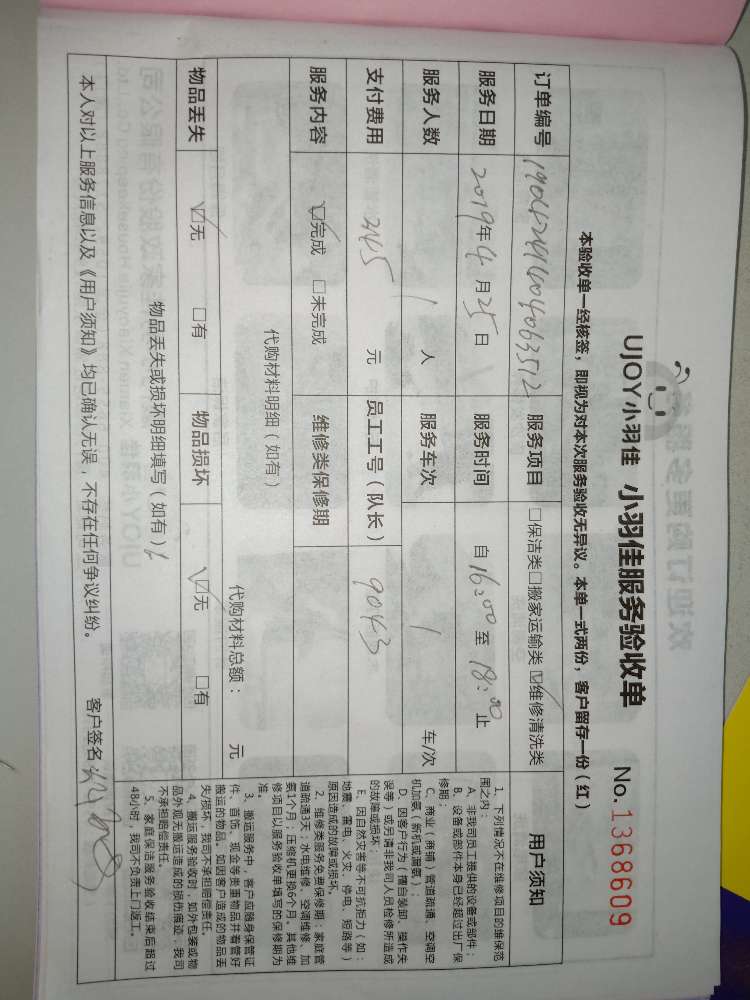 UJOY小羽佳 小羽佳服务验收单 No.1368609
本验收单一经核签，即视为对本次服务验收无异议。本单一式两份，客户留存一份（红）
订单编号 19042491404063512 服务项目 □保洁类□搬家运输类☑维修清洗类
服务日期 2019年4月25日 服务时间 自16:00至18:00止
服务人数 1 人 服务车次 1 车/次
支付费用 245 元 员工工号（队长） 9043
服务内容 ☑完成 □未完成 维修类保修期
代购材料明细（如有） 代购材料总额： 元
物品丢失 ☑无 □有 物品损坏 ☑无 □有
物品丢失或损坏明细填写（如有）
本人对以上服务信息以及《用户须知》均已确认无误，不存在任何争议纠纷。 客户签名：
用户须知
1、下列情况不在维修项目的维保范
围之内：
A、非我司员工提供的设备或部件；
B、设备或部件本身已经超过出厂保
修期；
C、商业（商铺）管道疏通、空调空
机加氨（新机或漏氨）；
D、因客户行为（擅自装卸、操作失
误等）或另请非我司人员检修所造成
的故障或损坏；
E、因自然灾害等不可抗拒力（如：
地震、雷电、火灾、停电、短路等）
原因造成的故障或损坏。
2、维修类服务免费保修期：家庭管
道疏通3天；水电维修、空调维修、加
氨1个月；压缩机更换6个月。其他维
修项目以服务验收单填写的保修期为
准。
3、搬运服务中，客户应随身保管证
件、首饰、现金等贵重物品并看管好
搬运的物品。如因客户造成的物品丢
失/损坏，我司不承担赔偿责任。
4、搬运服务验收时，如外包装或物
品外观无搬运造成的损伤痕迹，我司
不承担赔偿责任。
5、家庭保洁服务验收结束后超过
48小时，我司不负责上门返工。